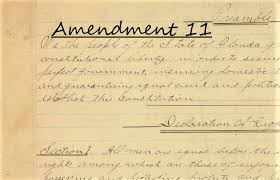 Preamble
Amendment 11
We the people of the State of Florida
constitutional liberty, in order to secure
perfect government, insuring domestic
and guaranteeing equal civil and political
establish this Constitution
Declaration of Rights
Section 1 All men are equal before the
right, among which are those of
possessing and protecting property and